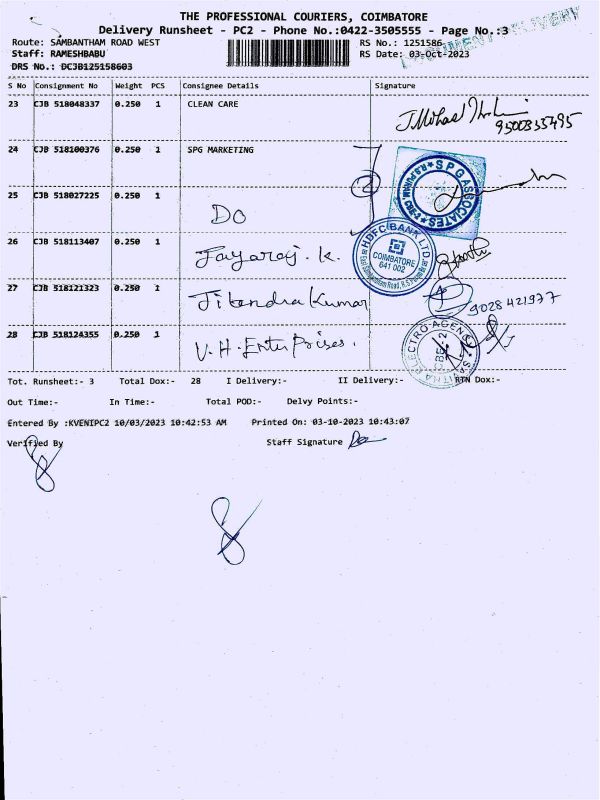 THE PROFESSIONAL COURIERS, COIMBATORE
Delivery Runsheet - PC2 - Phone No.:0422-3505555 - Page No.:3
Route: SAMBANTHAM ROAD WEST RS No.: 1251586
Staff: RAMESHBABU RS Date: 03-Oct-2023
DRS No.: DCJB125158603
S No Consignment No Weight PCS Consignee Details Signature
23 CJB 518048337 0.250 1 CLEAN CARE
9500835495
24 CJB 518100376 0.250 1 SPG MARKETING
2
SPG ASSOCIATES
25 CJB 518027225 0.250 1 DO
26 CJB 518113407 0.250 1 Jayaraj. K.
HDFC BANK LTD.
COIMBATORE
641 002
27 CJB 518121323 0.250 1 Jitendra Kumar
9028421977
28 CJB 518124355 0.250 1 V.H. Enterprises.
ELECTRO AGENC
CBE-2
Tot. Runsheet:- 3 Total Dox:- 28 I Delivery:- II Delivery:- RTN Dox:-
Out Time:- In Time:- Total POD:- Delvy Points:-
Entered By :KVENIPC2 10/03/2023 10:42:53 AM Printed On: 03-10-2023 10:43:07
Verified By Staff Signature